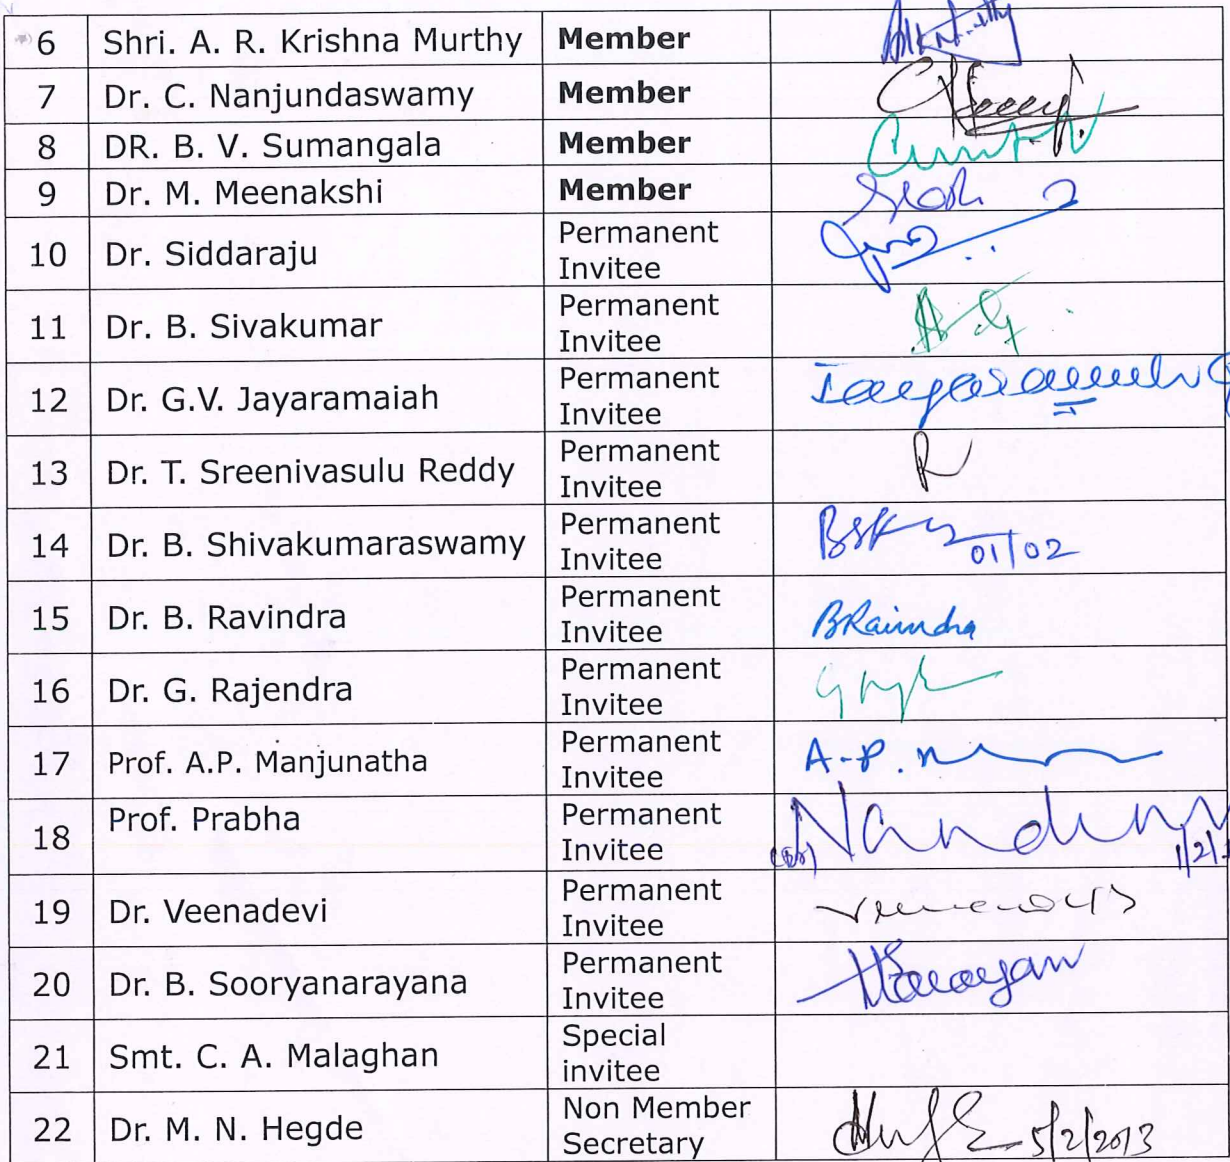 6 Shri. A. R. Krishna Murthy Member
7 Dr. C. Nanjundaswamy Member
8 DR. B. V. Sumangala Member
9 Dr. M. Meenakshi Member
10 Dr. Siddaraju Permanent
Invitee
11 Dr. B. Sivakumar Permanent
Invitee
12 Dr. G.V. Jayaramaiah Permanent
Invitee
13 Dr. T. Sreenivasulu Reddy Permanent
Invitee R
14 Dr. B. Shivakumaraswamy Permanent
Invitee 01/02
15 Dr. B. Ravindra Permanent
Invitee BRavindra
16 Dr. G. Rajendra Permanent
Invitee
17 Prof. A.P. Manjunatha Permanent
Invitee A.P.
18 Prof. Prabha Permanent
Invitee Nandini 1/2/
19 Dr. Veenadevi Permanent
Invitee
20 Dr. B. Sooryanarayana Permanent
Invitee
21 Smt. C. A. Malaghan Special
invitee
22 Dr. M. N. Hegde Non Member
Secretary 5/2/2013